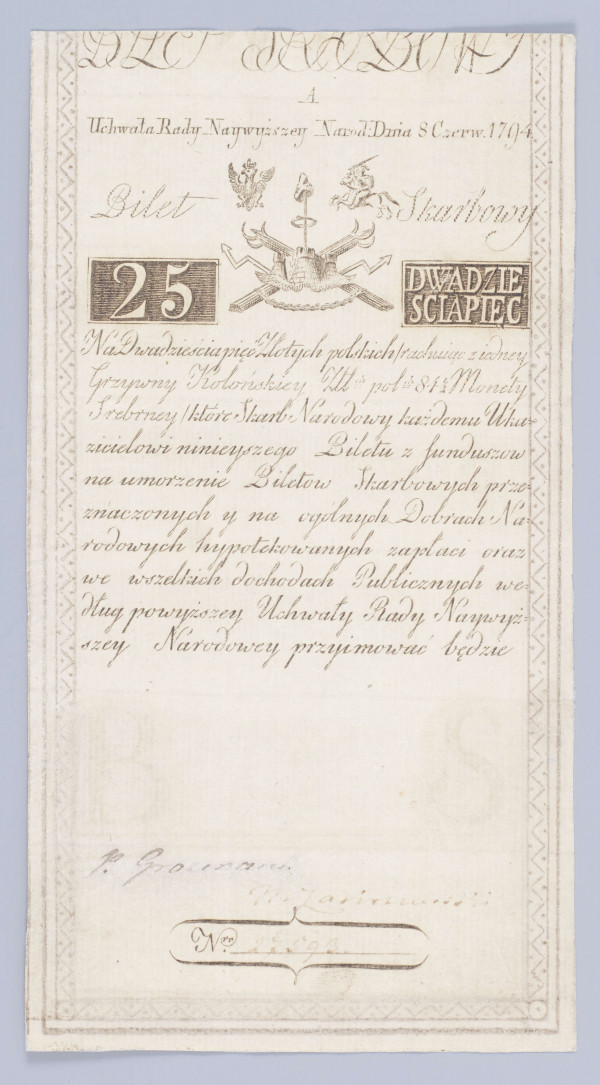 BILET SKARBOWY
A
Uchwała Rady Naywyższey Narod: Dnia 8 Czerw. 1794
Bilet Skarbowy
25
DWADZIE
SCIAPIEC
Na Dwadzieściapięć Złotych polskich / rachuiąc z iedney
Grzywny Kolońskiey Złł. pol. 84½ Monety
Srebrney / które Skarb Narodowy każdemu Uka-
zicielowi ninieyszego Biletu z funduszow
na umorzenie Biletow Skarbowych prze-
znaczonych y na ogólnych Dobrach Na-
rodowych hypotekowanych zapłaci oraz
we wszelkich dochodach Publicznych we-
dług powyższey Uchwały Rady Naywyż-
szey Narodowey przyimować będzie
Nro